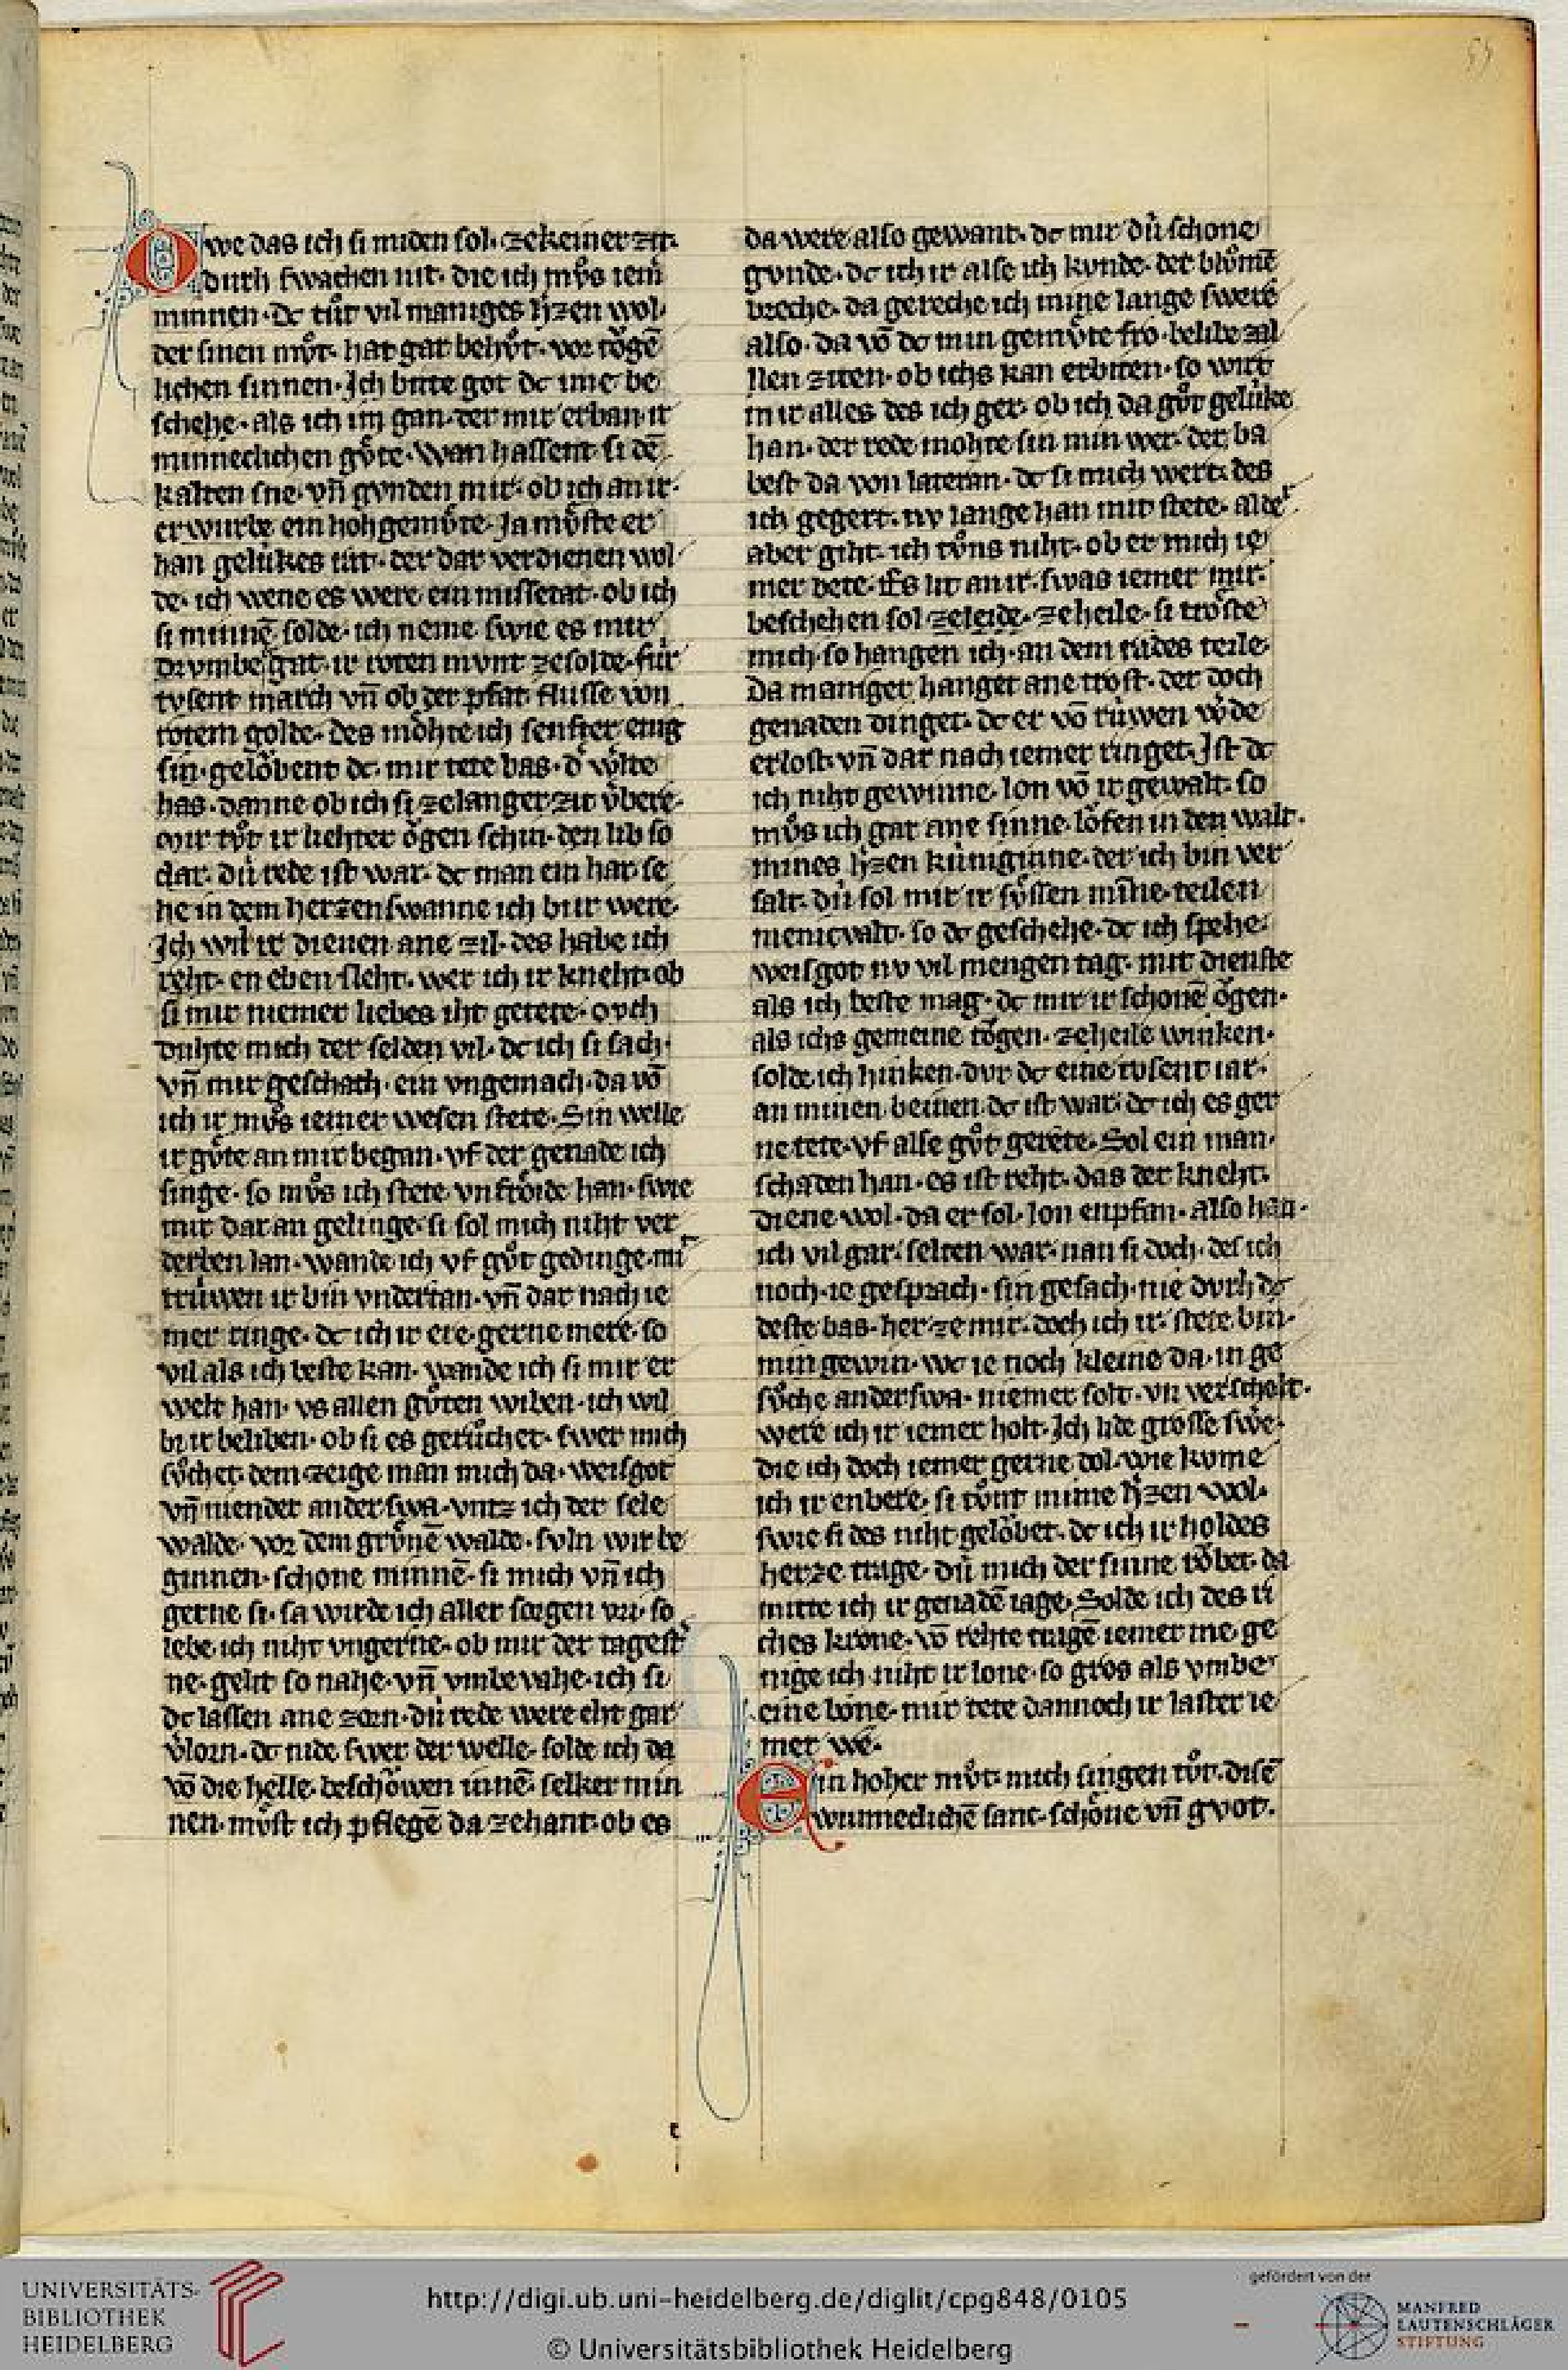 55
Owe das ich ſi miden ſol· ze keiner zit·
durh ſwachen nit· die ich mvͦs iem̄
minnen· dc tuͦt vil maniges hˀzen wol·
der ſinen mvͦt· hat gar behvͦt· vor toͮgē
lichen ſinnen· Ich bitte got dc ime be
ſchehe· als ich im gan· der mir erban· ir
minneclichen guͤte· wan haſſent ſi dē
kalten ſne· vn̄ gvnden mir· ob ich an ir·
erwurbe ein hohgemvͤte· Ja mvͤſte er
han gelùkes rat· der dar verdienen wol
de· ich wene es were ein miſſetat· ob ich
ſi minnē ſolde· ich neme ſwie es mir
drvmbe gat· ir roten mvnt ze ſolde· fùr
tvſent march vn̄ ob der pfat fluſſe von
rotem golde· des moͤhte ich ſenfter enig
ſin· geloͮbent dc· mir tete bas· dˀ welte
has· danne ob ich ſi ze langer zit vˀbere·
mir tuͦt ir liehter oͮgen ſchin· den lib ſo
clar· dù rede iſt war· dc man ein har· ſe
he in dem herzen ſwanne ich bi ir were·
Ich wil ir dienen ane zil· des habe ich
reht· en eben ſleht· wer ich ir kneht· ob
ſi mir niemer liebes iht getete· ovch
duhte mich der ſelden vil· dc ich ſi ſach·
vn̄ mir geſchach· ein vngemach· da vō
ich ir mvͦs iemer weſen ſtete· Sin welle
ir guͤte an mir began· vf der genade ich
ſinge· ſo mvͦs ich ſtete vnfroͤide han· ſwie
mir dar an gelinge· ſi ſol mich niht ver
derben lan· wande ich vf guͦt gedinge· mit
trùwen ir bin vndertan· vn̄ dar nach ie
mer ringe· dc ich ir ere· gerne mere· ſo
vil als ich beſte kan· wande ich ſi mir er
welt han· vs allen guͦten wiben· ich wil
bi ir beliben· ob ſi es geruͦchet· ſwer mich
ſuͦchet· dem zeige man mich da· weiſgot
vn̄ niender anderſwa· vntz ich der ſele
walde· vor dem gruͤnē walde· ſvln wir be
ginnen· ſchone minnē· ſi mich vn̄ ich
gerne ſi· ſa wirde ich aller ſorgen vri· ſo
lebe ich niht vngerne· ob mir der tageſt
ne· gelit ſo nahe· vn̄ vmbevahe· ich ſi
dc laſſen ane zorn· dù rede were eht gar
vˀlorn· dc nide ſwer der welle· ſolde ich da
vō die helle· beſchoͮwen innē· ſelker min
nen· mvͤſt ich pflegē da zehant· ob es
da were alſo gewant· dc mir dù ſchone
gvnde· dc ich ir alſe ich kvnde· der bluͦmē
breche· da gereche ich mine lange ſwere
alſo· da vō dc min gemvͤte fro· belibe zal
llen ziten· ob ichs kan erbiten· ſo wirt
mir alles des ich ger· ob ich da guͦt gelùke
han· der rede mohte ſin min wer· der ba
beſt da von lateran· dc ſi mich wert· des
ich gegert· nv lange han mit ſtete· alder
aber giht· ich tuͦns niht· ob er mich ie
mer bete· Es lit an ir· ſwas iemer mir·
beſchehen ſol ze leide· ze heile· ſi troͤſte
mich· ſo hangen ich· an dem tùdes teile·
da maniger hanget ane troſt· der doch
genaden dinget· dc er vō rùwen wˀde
erloſt· vn̄ dar nach iemer ringet· Iſt dc
ich niht gewinne· lon vō ir gewalt· ſo
mvͦs ich gar ane ſinne· loͮfen in den walt·
mines hˀzen kùniginne· der ich bin ver
ſalt· dù ſol mir ir ſuͤſſen mīne· teilen
menicvalt· ſo dc geſchehe· dc ich ſpehe·
weiſgot nv vil mengen tag· mit dienſte
als ich beſte mag· dc mir ir ſchonē oͮgen·
als ichs gemeine toͮgen· ze heile winken·
ſolde ich hinken· dvr dc eine tvſent iar·
an minen beinen· dc iſt war· dc ich es ger
ne tete· vf alſe guͦt gerete· Sol ein man·
ſchaden han· es iſt reht· das der kneht·
diene wol· da er ſol· lon enpfan· alſo han·
ich vil gar· ſelten war· nan ſi doch· deſ ich
noch· ie geſprach· ſin geſach· nie dvrh dc
beſte bas· her ze mir· doch ich ir· ſtete bin·
min gewin· wc ie noch kleine da· in ge
ſuͦche anderſwa· niemer ſolt· vn verſcholt·
were ich ir iemer holt· Ich lide groſſe ſwe·
die ich doch iemer gerne dol· wie kvme
ich ir enbere· ſi tuͦnt mime hˀzen wol·
ſwie ſi des niht geloͮbet· dc ich ir holdes
herze trage· dù mich der ſinne roͮbet· da
mitte ich ir genadē iage· Solde ich des ri
ches krone· vō rehte tragē iemer me· ge
nige ich niht ir lone· ſo gros als vmbe
eine bone· mir tete dannoch ir laſter ie
mer we·
Ein hoher mvͦt· mich ſingen tuͦt· diſē
wunneclichē ſanc· ſchoͤne vn̄ gvot·
t
UNIVERSITÄTS-
BIBLIOTHEK
HEIDELBERG
http://digi.ub.uni-heidelberg.de/diglit/cpg848/0105
© Universitätsbibliothek Heidelberg
gefördert von der
MANFRED
LAUTENSCHLÄGER
STIFTUNG